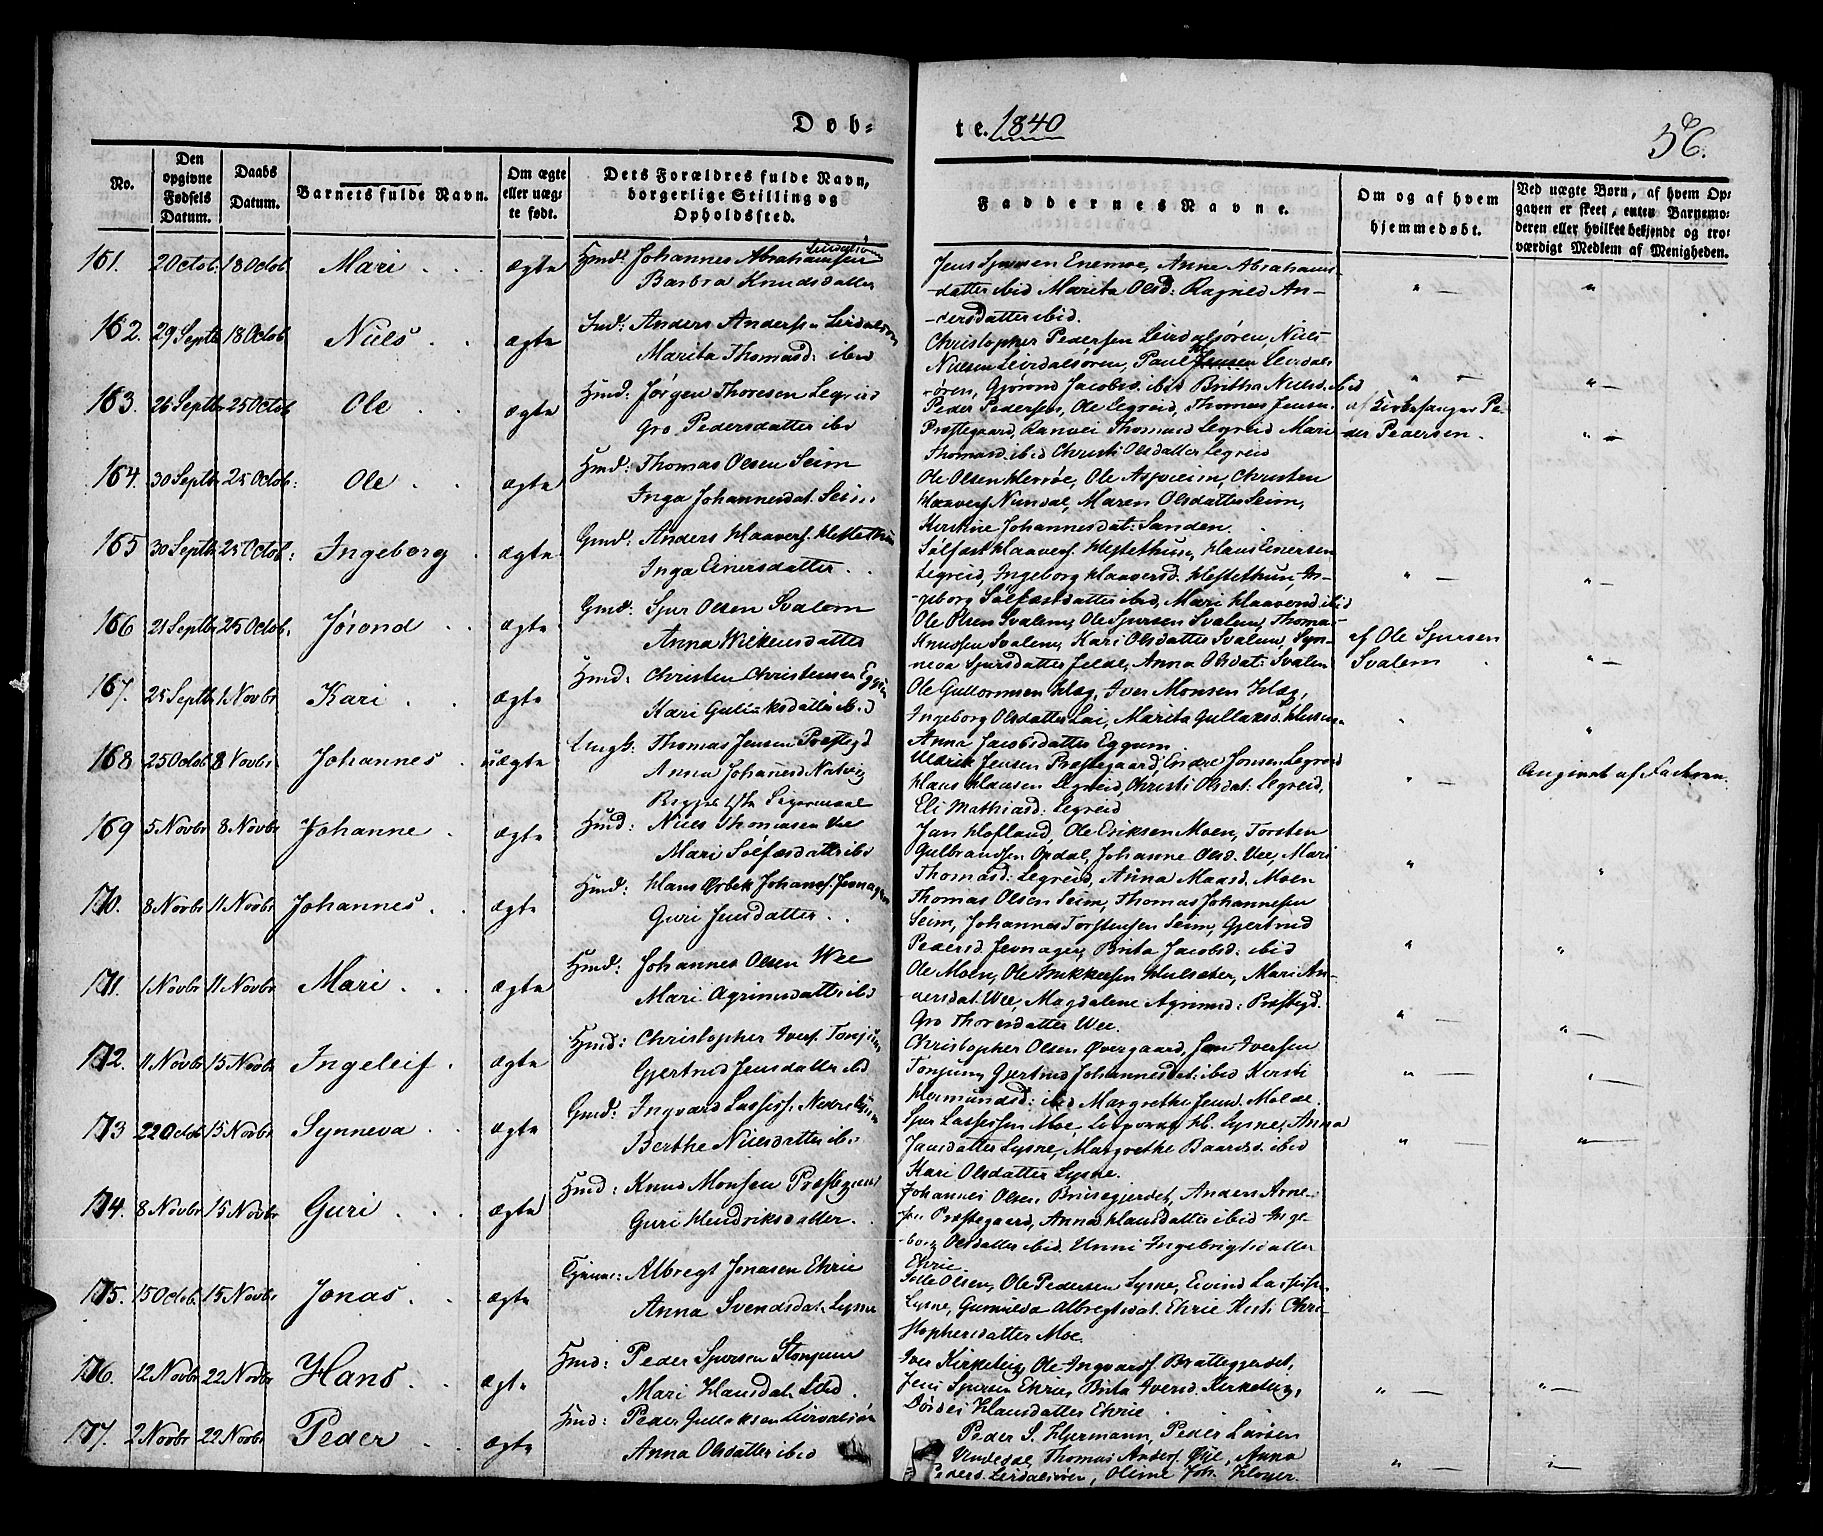 Døb-
te. 1840
56.
No.
Den opgivne Fødsels Datum.
Daabs Datum.
Barnets fulde Navn.
Om ægte eller uægte født.
Dets Forældres fulde Navn, borgerlige Stilling og Opholdssted.
Faddernes Navne.
Om og af hvem hjemmedøbt.
Ved uægte Børn, af hvem Opgaven er skeet, enten Barnemoderen eller hvilket bekjendt og troværdigt Medlem af Menigheden.
161. 2 Octob: 18 Octob Mari ægte Hmd: Johannes Abrahamsen
Barbra Knudsdatter
Jens Enemoe, Anne Abrahams-
datter ibid Marita Olsd: Ragned An-
dersdatter ibid.
162. 29 Septb 18 Octob Niels ægte Anders Andersen Leirdalsøren
Marita Thomasd: ibid
Christopher Pedersen Leirdalsøren, Niels
Nielsen Leirdalsøren, Paul Jensen Leirdals
øren, Gjørond Jacobs. ibid Britha Nielsd. ibid
163. 26 Septbr 25 Octob Ole ægte Hmd: Jørgen Thoresen Legreid
Gro Pedersdatter ibd
Peder Pedersen, Ole Legreid, Thomas Jensen
Præstegaard, Ranvei Thomasd Legreid Mari
Thomasd. ibid Christi Olsdatter Legreid
af Kirkesanger Pe-
der Pedersen.
164. 30 Septbr 25 Octob: Ole ægte Hmd: Thomas Olsen Seim
Inga Johannesdat. Seim
Ole Olsen Ole Christen
Haavers Nundal, Maren Olsdatter Seim,
Kirstine Johannesdat: Sanden.
165 30 Septbr 25 Octob: Ingeborg ægte Gmd: Anders Haavers. Hestethun
Inga Einersdatter
Sølfest Haavers. Hestethun, Hans Einersen
Legreid, Ingeborg Haaversd. Hestethun, In-
geborg Sølfestdatter ibid, Mari Haaversd ibid
166 21 Septbr 25 Octob. Jørond ægte Gmd: Sjur Olsen Svalem
Anna Wikensdatter
Ole Olsen Svalem, Ole Sjursen Svalem, Thomas
Knudsen Svalem, Kari Olsdatter Svalem, Syn-
neva Sjursdatter Jelde, Anna Olsdat: Svalem
af Ole Sjursen
Svalem
167. 25 Septb 1 Novbr Kari ægte Hmd: Christen Christensen Eggum
Kari Gullaksdatter ibid
Ole Guttormsen Hæg, Iver Monsen Hæg,
Ingeborg Olsdatter Lai, Marita Gullaksd.
Anna Jacobsdatter Eggum
168 25 Octob 8 Novbr Johannes uægte Ungk: Thomas Jensen Præstegd
Anna Johanesd Natvig
Begges 1ste Leiermaal
Ulrik Jensen Præstegaard, Endre Jonsen Legreid
Hans Hansen Legreid, Christi Olsdat: Legreid,
Eli Mathiasd: Legreid
Angivet af Faderen.
169 5 Novbr 8 Novbr Johanne ægte Hmd: Niels Thomasen Vee
Mari Sølfæsdatter ibd
Jan Hofland, Ole Eriksen Moen, Torsten
Gulbrandsen Opdal, Johanne Olsd. Vee, Mari
Thomasd: Legreid, Anna Maasd. Moen
170. 8 Novbr 11 Novbr Johannes ægte Hmd: Hans Ørbek Johans. Jernager
Guri Jensdatter
Thomas Olsen Seim, Thomas Johannesen
Seim, Johannes Torstensen Seim, Gjertrud
Pedersd Jernager, Brita Jacobsd: ibid
171. 1 Novbr 11 Novbr Mari ægte Hmd: Johannes Olsen Wee
Mari Agrimsdatter ibd
Ole Moen, Ole Mari An-
dersdat. Wee, Magdalene Agrimsd: Præstegd.
Gro Thoresdatter Wee.
172. 11 Novbr 15 Novbr Ingeleif ægte Hmd: Christopher Ivers. Tønjum
Gjertrud Jensdatter ibd
Christopher Olsen Øvregaard, Jan Iversen
Tønjum, Gjertrud Johannesdat: ibid Kirsti
Hermundsd: ibid Margrethe Jensd. Molde.
173 22 Octob 15 Novbr. Synneva ægte Gmd: Ingvard Lasses.
Berthe Nielsdatter ibd
Sjur Lassessen Moe, Lysne, Anna
Jansdatter Lysne, Margrethe Baardsd. ibid
Kari Olsdatter Lysne.
174. 8 Novbr 15 Novbr Guri ægte Hmd: Knud Monsen Præstegrund
Guri Hendriksdatter.
Johannes Olsen Brusegjerdet, Anders Arne-
sen Præstegaard, Anna Hansdatter ibid Inge-
borg Olsdatter ibid. Unni Ingebrigtsdatter
Ehrie.
175. 15 Octob. 15 Novbr Jonas. ægte Albregt Jonasen Ehrie
Anna Svendsdat. Lysne
Olsen, Ole Pedersen Lysne, Eivind Lassess.
Lysne, Gunnilda Albregtsdat. Ehrie Kirsti Chri-
stophersdatter Moe.
176. 12 Novbr 22 Novbr Hans. ægte Hmd: Peder Sjursen Stønjum
Mari Hansdat. ibid.
Iver Kirkeleig, Ole Ingvards. Brattegjerdet,
Jens Sjursen Ehrie, Brita Iversd. Kirkeleig,
Dordei Hansdatter Ehrie
177. 2 Novbr 22 Novbr Peder ægte Hmd: Peder Gullaksen Leirdalsøren
Anna Olsdatter ibid
Peder S. Hjermann, Peder Larsen
Vindedal, Thomas Anders. Øye, Anna
Peders. Leirdalsøren, Oline Joh. Kloger.